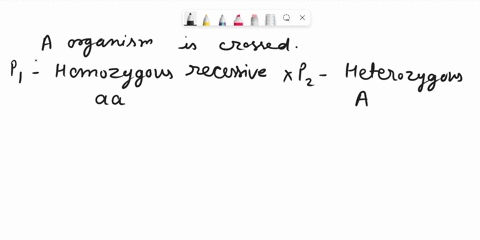 A organism is crossed.
P1 :- Homozygous recessive x P2 - Heterozygous
aa A